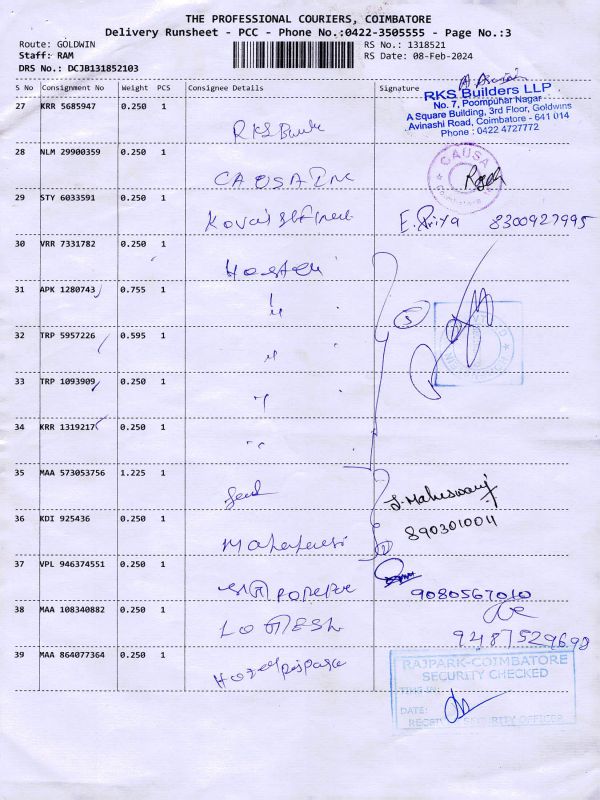 THE PROFESSIONAL COURIERS, COIMBATORE
Delivery Runsheet - PCC - Phone No.:0422-3505555 - Page No.:3
Route: GOLDWIN
Staff: RAM
DRS No.: DCJB131852103
RS No.: 1318521
RS Date: 08-Feb-2024
S No Consignment No Weight PCS Consignee Details Signature
RKS Builders LLP
No. 7, Poompuhar Nagar
A Square Building, 3rd Floor, Goldwins
Avinashi Road, Coimbatore - 641 014
Phone : 0422 4727772
27 KRR 5685947 0.250 1
28 NLM 29900359 0.250 1 CAUSA INC CAUSA
29 STY 6033591 0.250 1 E. Priya 8300927995
30 VRR 7331782 0.250 1
31 APK 1280743 0.755 1 5
32 TRP 5957226 0.595 1
33 TRP 1093909 0.250 1
34 KRR 1319217 0.250 1
35 MAA 573053756 1.225 1 J. Maheswari
8903010011
36 KDI 925436 0.250 1
37 VPL 946374551 0.250 1 9080567010
38 MAA 108340882 0.250 1 9487529698
39 MAA 864077364 0.250 1
RAJPARK-COIMBATORE
SECURITY CHECKED
TIME IN:
DATE:
SECURITY OFFICER